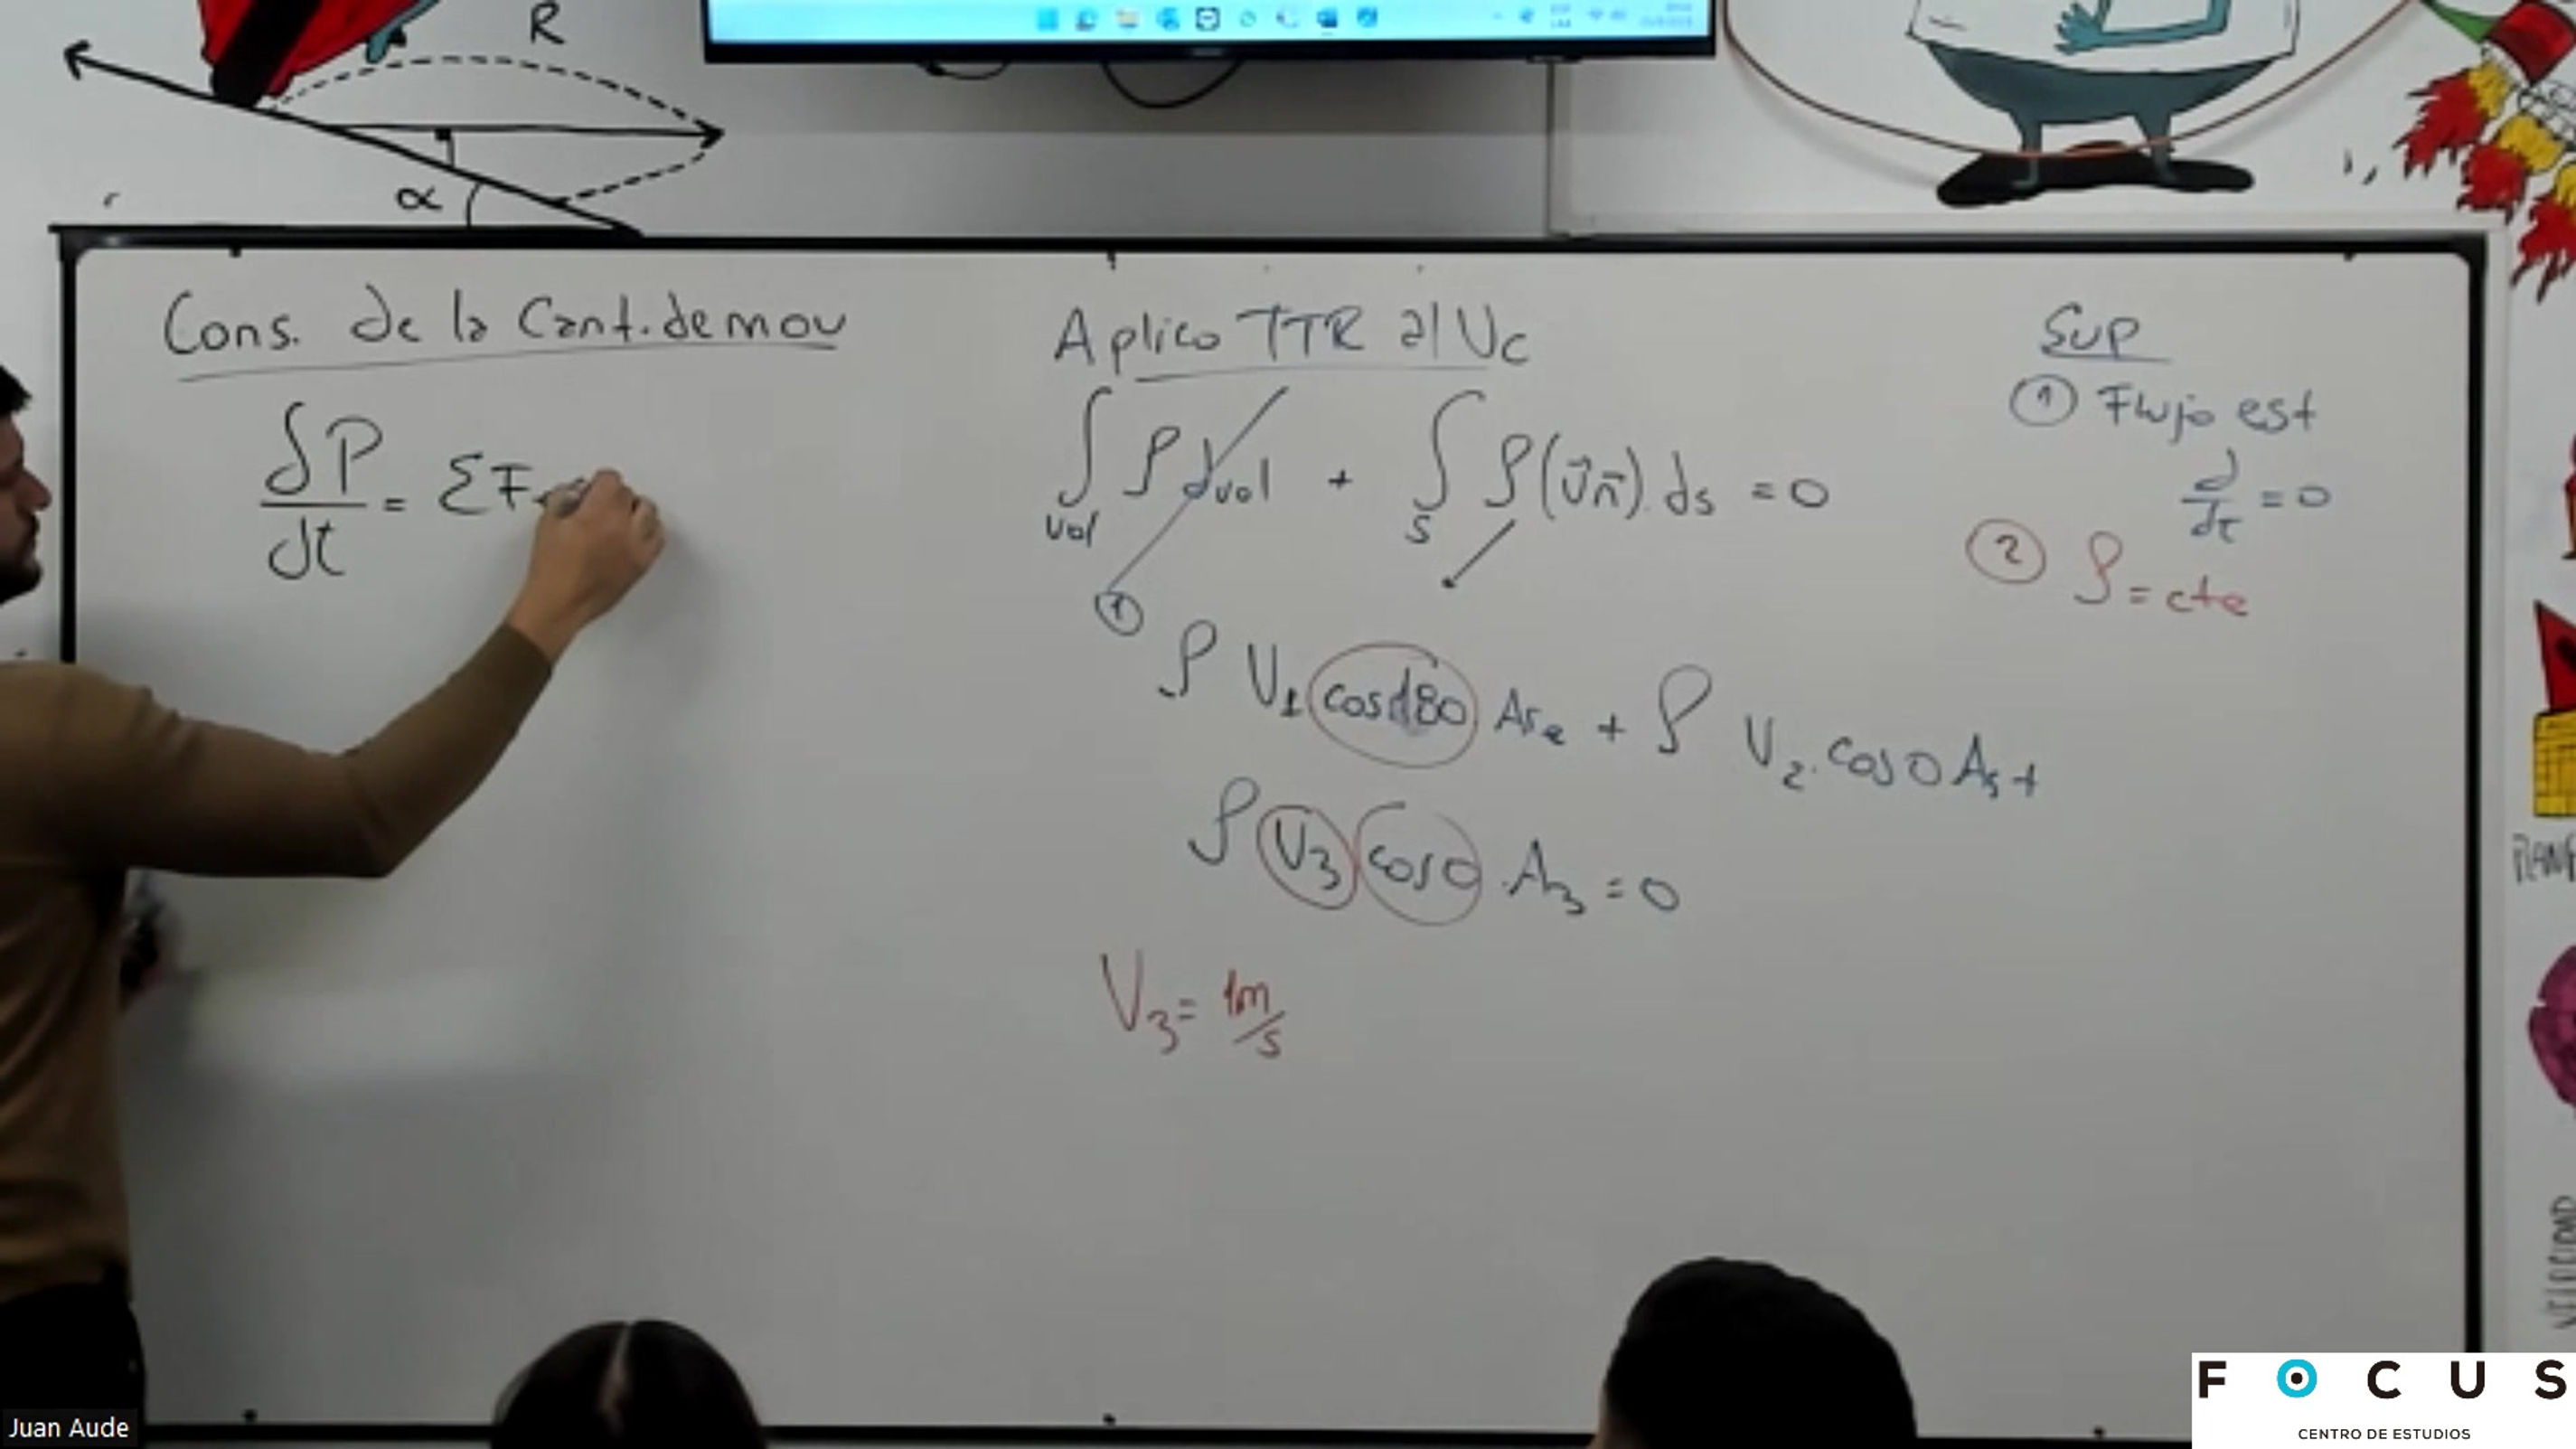 R
α
Cons. de la Cant. de mov
δP/dt = ΣF
Aplico TTR al Vc
∫vol ρ dvol + ∫s ρ(v⃗n⃗).ds = 0
①
ρ V1 cos180 Ase + ρ V2.cos0 As +
ρ V3 cos0 .A3 = 0
V3 = 1m/s
Sup
① Flujo est
d/dt = 0
② ρ = cte
Juan Aude
FOCUS
CENTRO DE ESTUDIOS